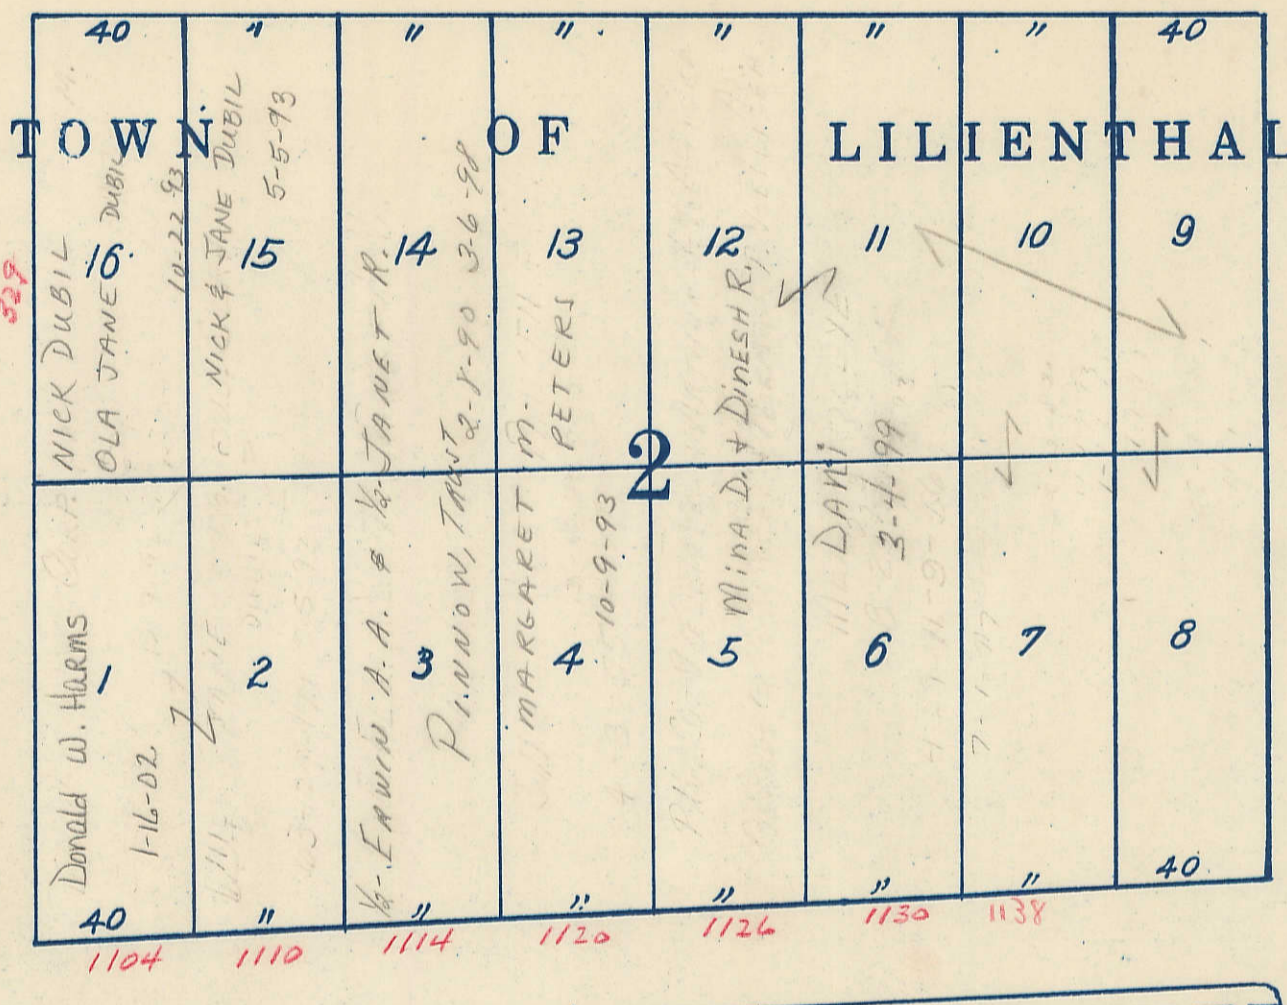 40 " " " " " " 40
TOWN OF LILIENTHAL
16 15 14 13 12 11 10 9
NICK DUBIL
OLA JANE DUBIL
10-22-93
NICK & JANE DUBIL
5-5-93
½-ERWIN A.A. & ½-JANET R.
PINNOW, TRUST
2-8-90 3-6-98
MARGARET M.
PETERS
10-9-93
Mina D. + Dinesh R.
DANI
3-4-99
2
1 2 3 4 5 6 7 8
Donald W. Harms
1-16-02
40 " " " " " " 40
329
1104 1110 1114 1120 1126 1130 1138